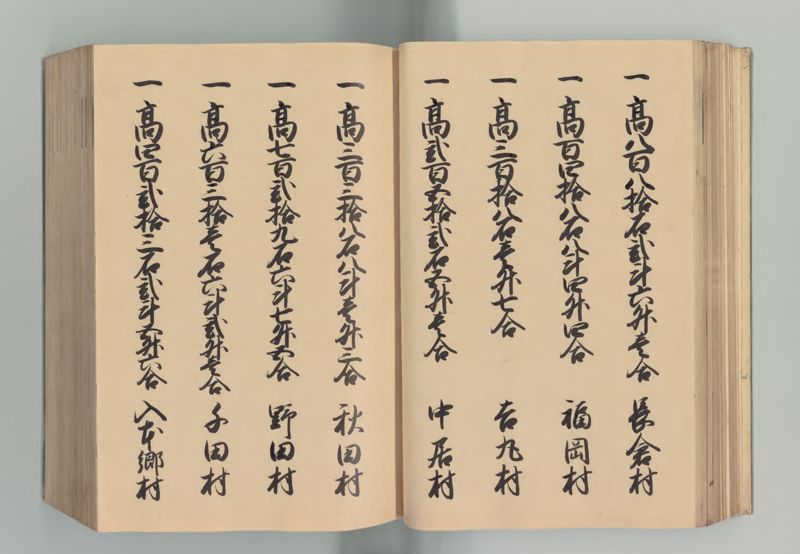 一 高八百八拾石弐斗六升壱合 長倉村
一 高百四拾八石八斗四升四合 福岡村
一 高三百拾八石壱升七合 吉丸村
一 高弐百五拾弐石五升壱合 中居村
一 高三百三拾八石八斗壱升三合 秋田村
一 高七百弐拾九石六斗七升五合 野田村
一 高六百三拾壱石六斗弐升壱合 千田村
一 高四百弐拾三石弐斗五升六合 入本郷村